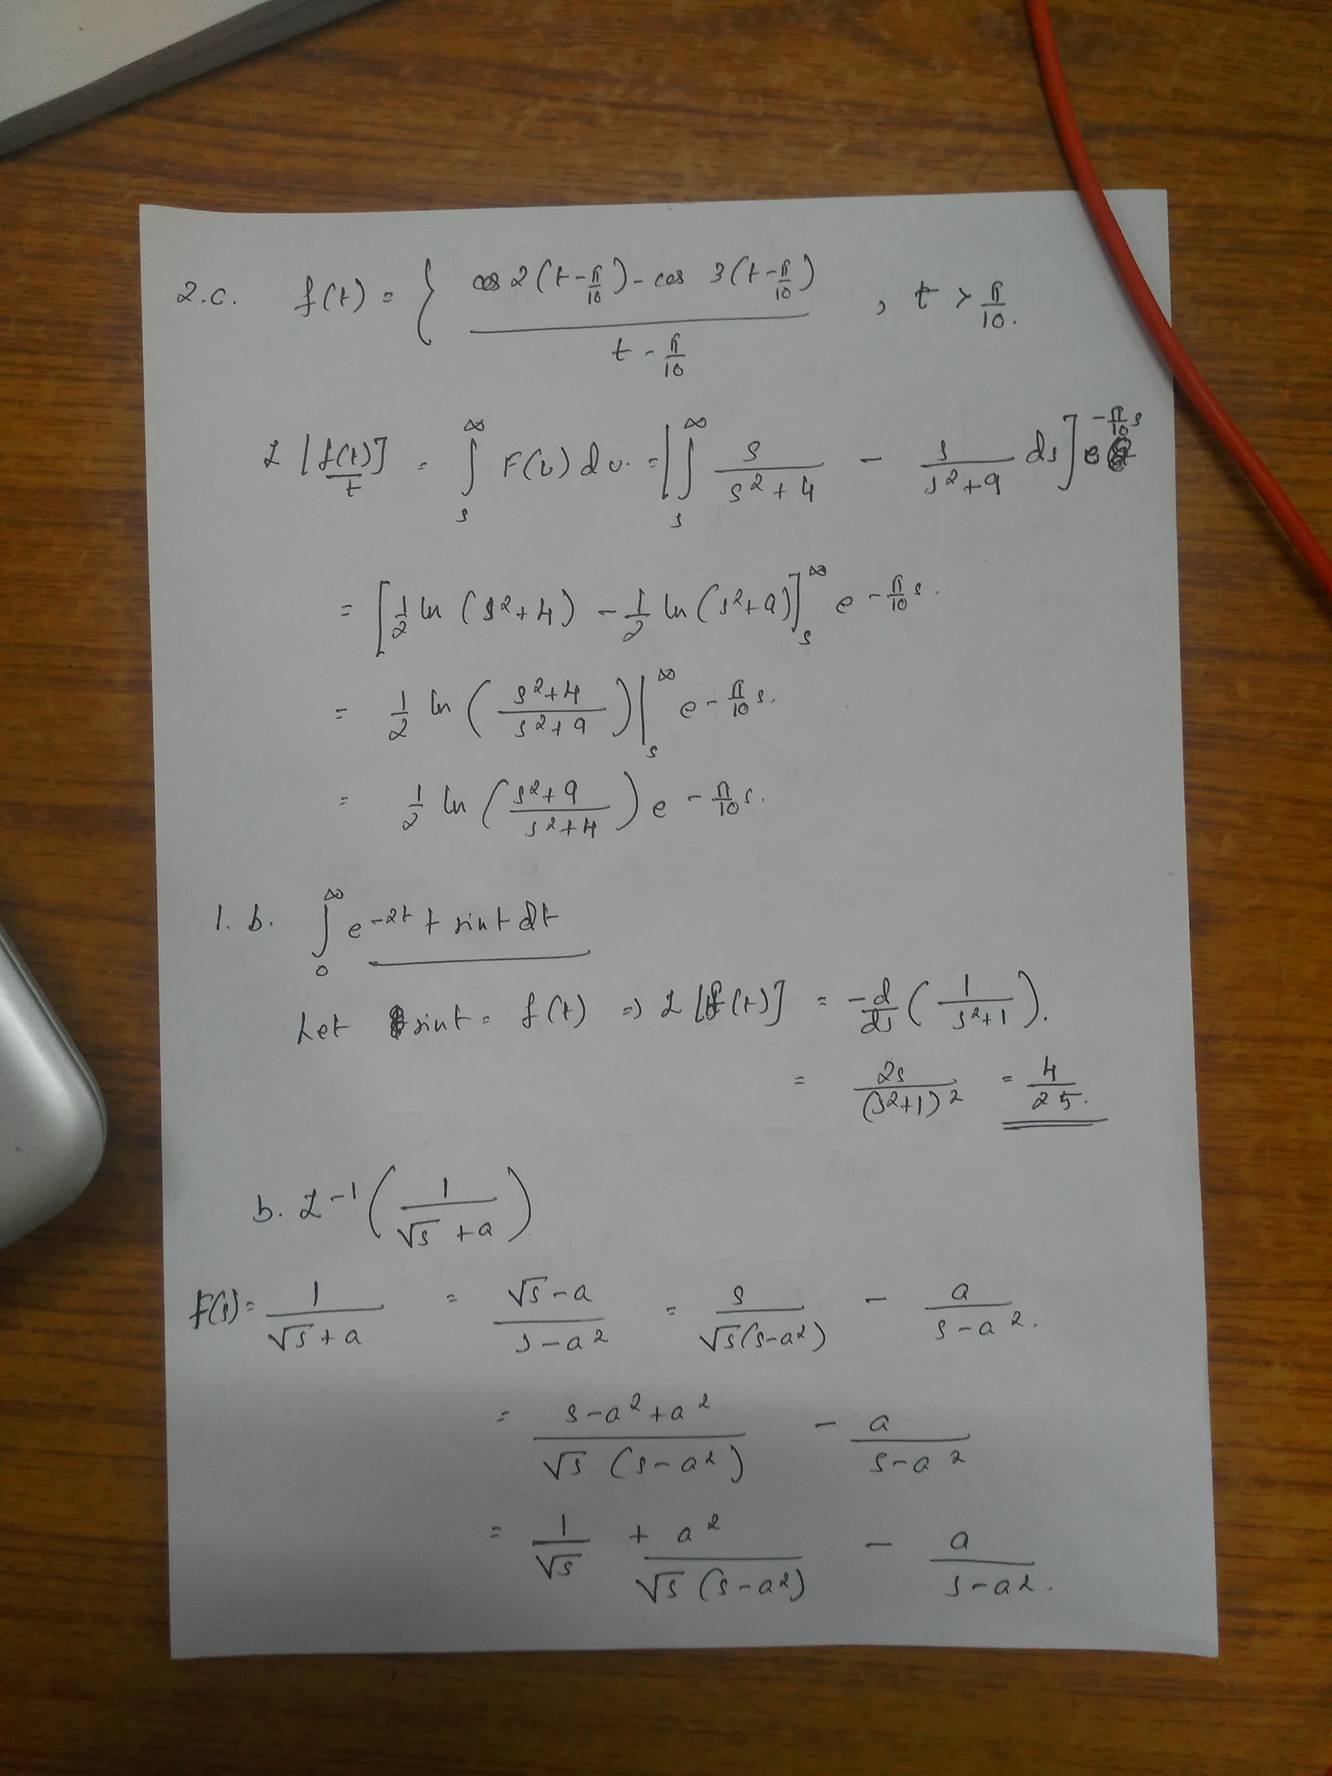 2.c. f(t) = { (cos 2(t-π/10) - cos 3(t-π/10)) / (t - π/10) , t > π/10.
L[f(t)/t] = ∫_s^∞ F(u) du. = [∫_s^∞ s/(s²+4) - s/(s²+9) ds] e^(-π/10 s)
= [1/2 ln (s²+4) - 1/2 ln (s²+9)]_s^∞ e^(-π/10 s).
= 1/2 ln ((s²+4)/(s²+9)) |_s^∞ e^(-π/10 s).
= 1/2 ln ((s²+9)/(s²+4)) e^(-π/10 s).
1. b. ∫_0^∞ e^(-2t) t sint dt
Let sint = f(t) ⇒ L[f(t)] = -d/ds (1/(s²+1)).
= 2s/(s²+1)² = 4/25.
b. L⁻¹ (1/(√s + a))
F(s) = 1/(√s + a) = (√s - a)/(s - a²) = s/(√s(s-a²)) - a/(s-a²).
= (s-a²+a²)/(√s (s-a²)) - a/(s-a²)
= 1/√s + a²/(√s (s-a²)) - a/(s-a²).